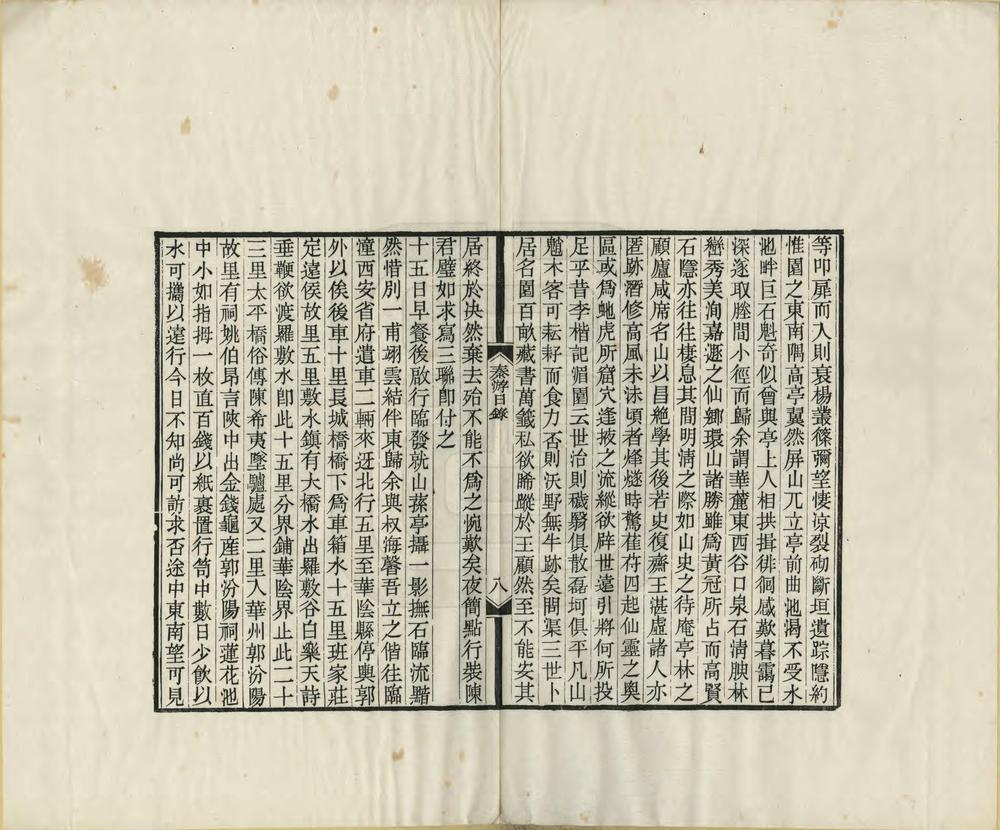 等叩扉而入則衰楊叢篠彌望悽涼裂砌斷垣遺踪隱約
惟園之東南隅高亭翼然屏山兀立亭前曲池渴不受水
池畔巨石魁奇似會與亭上人相拱揖徘徊感歎暮靄已
深遂取塍間小徑而歸余謂華麓東西谷口泉石清腴林
巒秀美洵嘉遯之仙鄉環山諸勝雖爲黃冠所占而高賢
石隱亦往往棲息其間明清之際如山史之待庵亭林之
顧廬咸席名山以昌絶學其後若史復齋王湛虛諸人亦
匿跡潛修高風未沬頃者烽燧時驚萑苻四起仙靈之奧
區或爲虵虎所窟穴逢掖之流縱欲辟世遠引將何所投
足乎昔李楷記湄園云世治則穢翳俱散磊坷俱平凡山
魈木客可耘耔而食力否則沃野無牛跡矣問渠三世卜
居名園百畝藏書萬籤私欲睎蹤於王顧然至不能安其
秦游日錄
八
居終於決然棄去殆不能不爲之惋歎矣夜簡點行裝陳
君璧如求寫三聯卽付之
十五日早餐後啟行臨發就山蓀亭攝一影撫石臨流黯
然惜別一甫翊雲結伴東歸余與叔海馨吾立之偕往臨
潼西安省府遣車二輛來迓北行五里至華陰縣停輿郭
外以俟後車十里長城橋橋下爲車箱水十五里班家莊
定遠侯故里五里敷水鎭有大橋水出羅敷谷白樂天詩
垂鞭欲渡羅敷水卽此十五里分界鋪華陰界止此二十
三里太平橋俗傳陳希夷墜驢處又二里入華州郭汾陽
故里有祠姚伯昂言陝中出金錢龜産郭汾陽祠蓮花池
中小如指拇一枚直百錢以紙裹置行笥中數日少飲以
水可攜以遠行今日不知尚可訪求否途中東南望可見